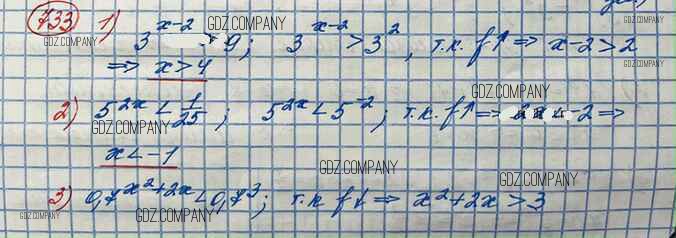 733 1) 3^(x-2) > 9; 3^(x-2) > 3^2, т.к. f↑ ⇒ x-2>2
⇒ x>4
2) 5^(2x) < 1/25; 5^(2x) < 5^(-2); т.к. f↑ ⇒ 2x < -2 ⇒
x<-1
3) 0,7^(x²+2x) < 0,7^3; т.к f↓ ⇒ x²+2x>3
GDZ.COMPANY
GDZ.COMPANY
GDZ.COMPANY
GDZ.COMPANY
GDZ.COMPANY
GDZ.COMPANY
GDZ.COMPANY
GDZ.COMPANY
GDZ.COMPANY
GDZ.COMPANY
GDZ.COMPANY
GDZ.COMPANY